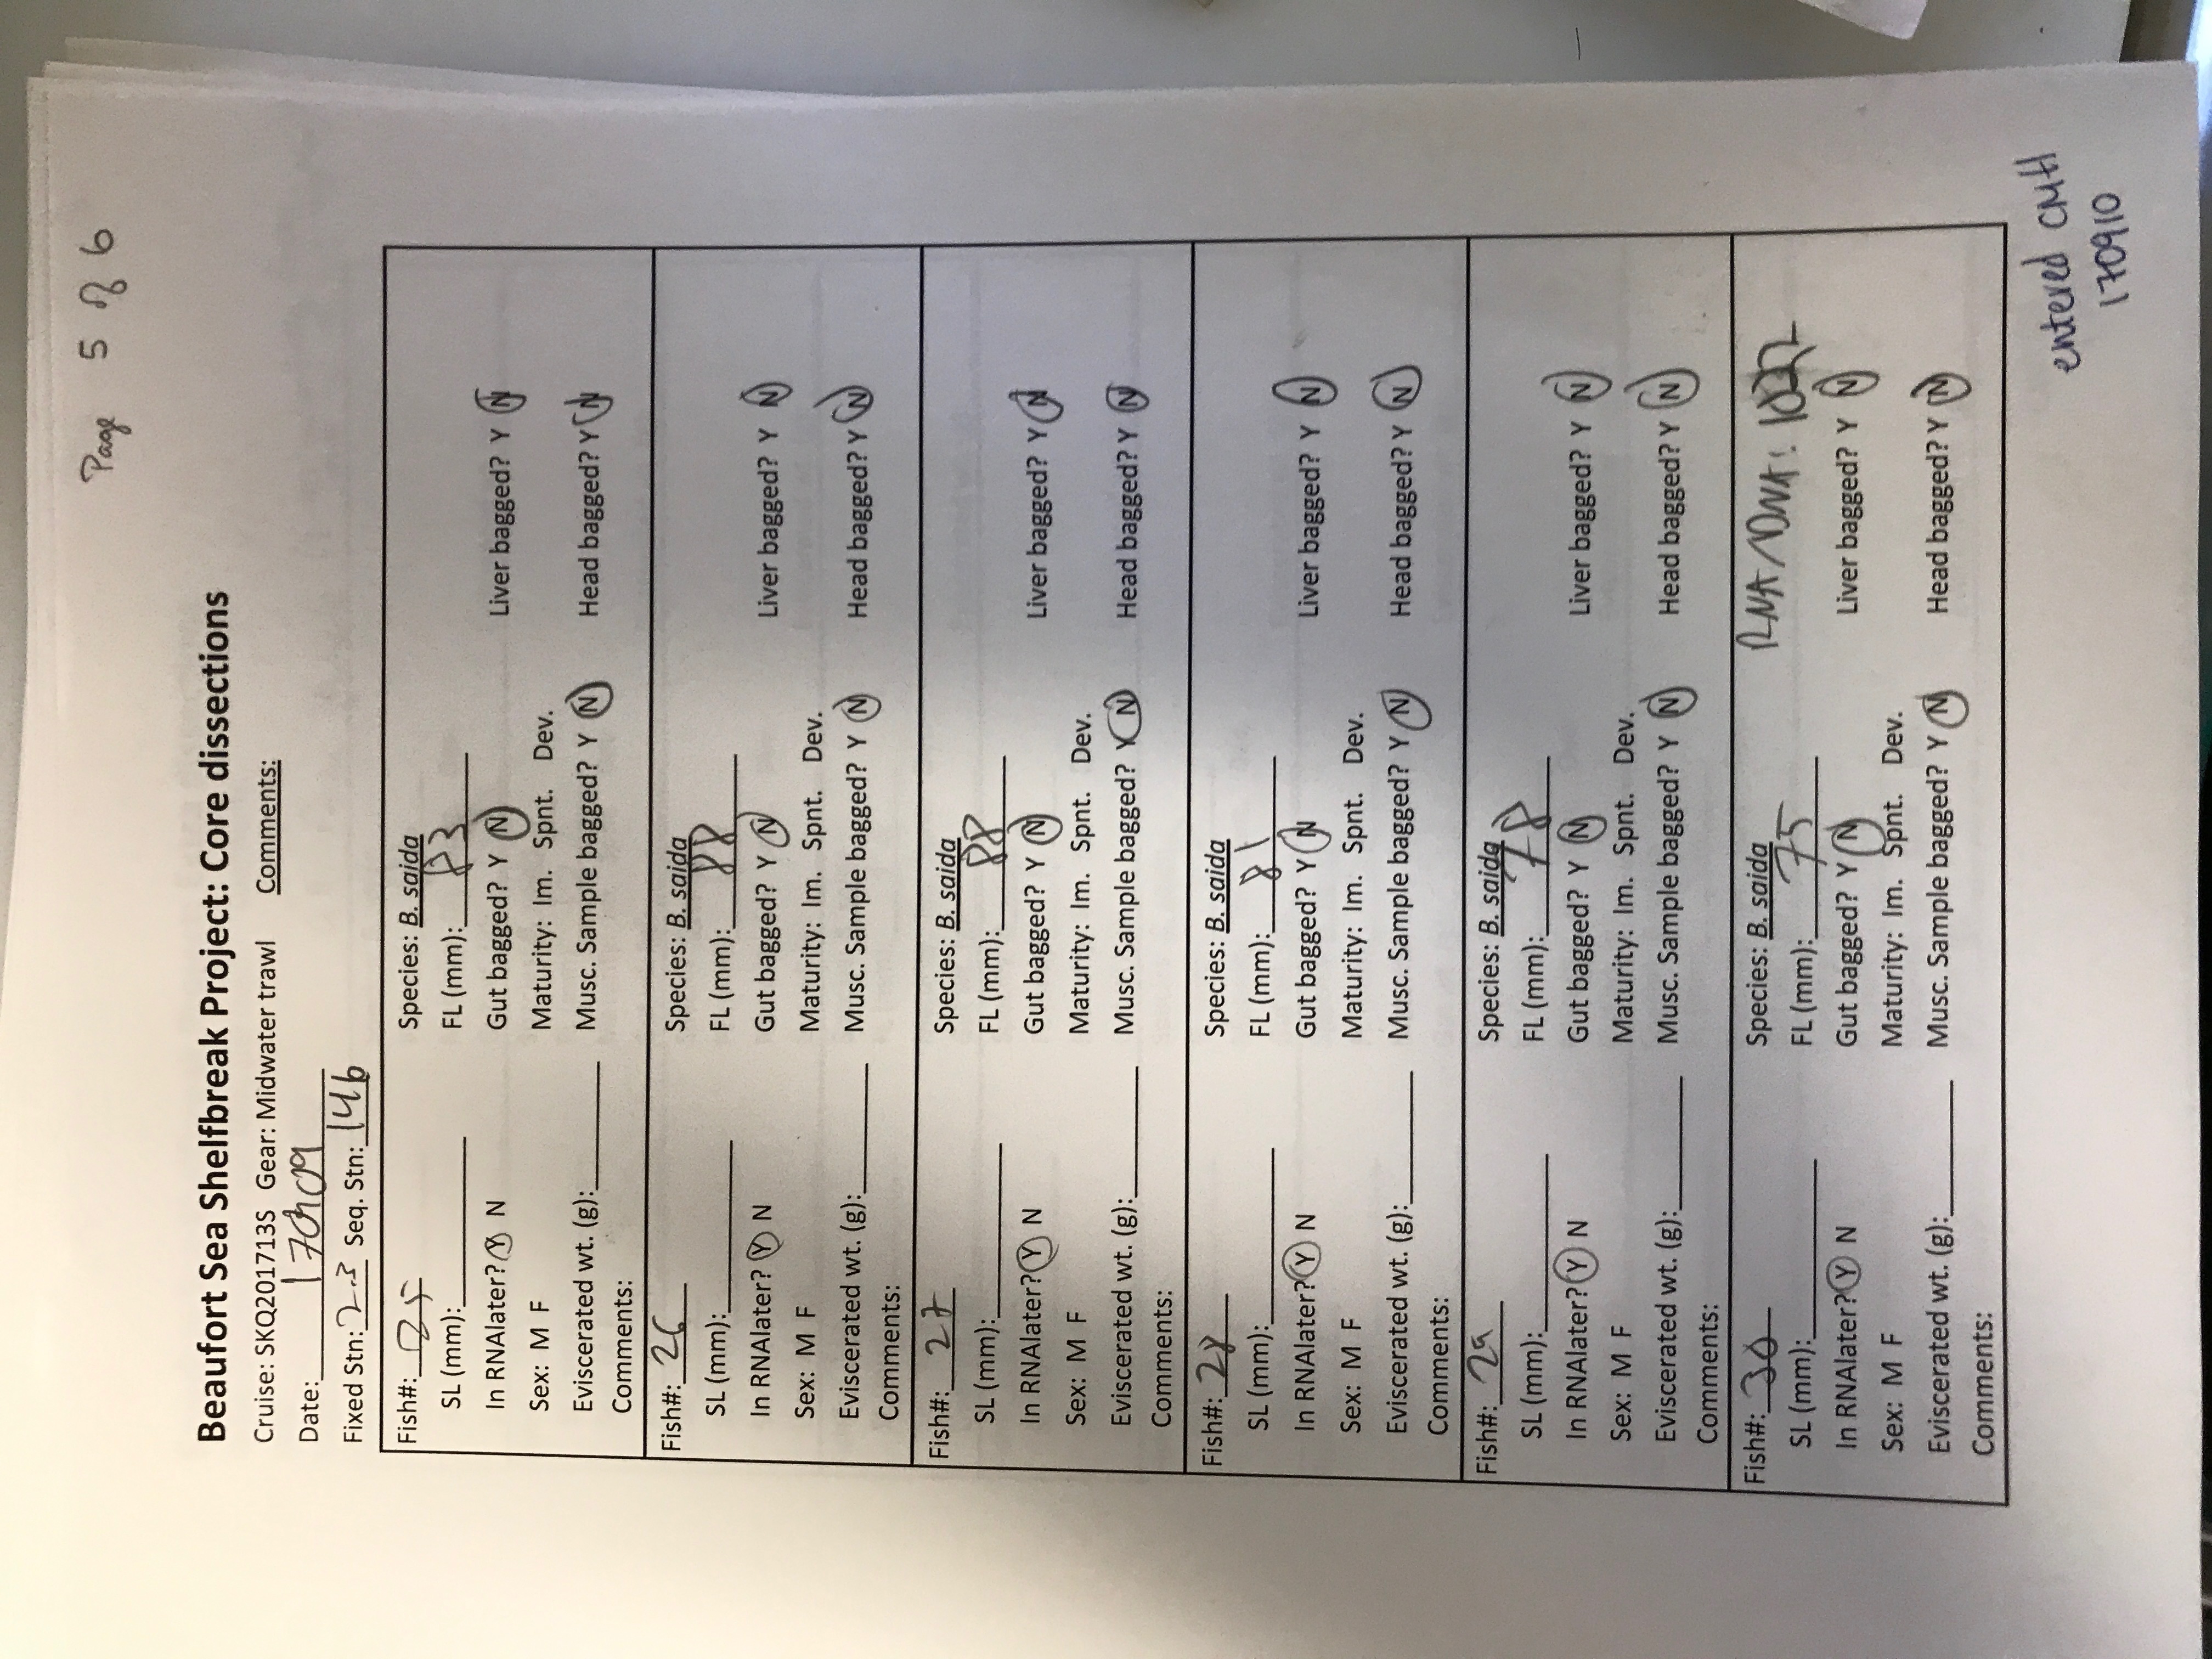 Page 5 of 6
Beaufort Sea Shelfbreak Project: Core dissections
Cruise: SKQ201713S Gear: Midwater trawl Comments:
Date: 170909
Fixed Stn: 23 Seq. Stn: 14b
Fish#: 25 Species: B. saida
SL (mm): FL (mm): 83
In RNAlater? Y N Gut bagged? Y N Liver bagged? Y N
Sex: M F Maturity: Im. Spnt. Dev.
Eviscerated wt. (g): Musc. Sample bagged? Y N Head bagged? Y N
Comments:
Fish#: 26 Species: B. saida
SL (mm): FL (mm): 88
In RNAlater? Y N Gut bagged? Y N Liver bagged? Y N
Sex: M F Maturity: Im. Spnt. Dev.
Eviscerated wt. (g): Musc. Sample bagged? Y N Head bagged? Y N
Comments:
Fish#: 27 Species: B. saida
SL (mm): FL (mm): 88
In RNAlater? Y N Gut bagged? Y N Liver bagged? Y N
Sex: M F Maturity: Im. Spnt. Dev.
Eviscerated wt. (g): Musc. Sample bagged? Y N Head bagged? Y N
Comments:
Fish#: 28 Species: B. saida
SL (mm): FL (mm): 81
In RNAlater? Y N Gut bagged? Y N Liver bagged? Y N
Sex: M F Maturity: Im. Spnt. Dev.
Eviscerated wt. (g): Musc. Sample bagged? Y N Head bagged? Y N
Comments:
Fish#: 29 Species: B. saida
SL (mm): FL (mm): 78
In RNAlater? Y N Gut bagged? Y N Liver bagged? Y N
Sex: M F Maturity: Im. Spnt. Dev.
Eviscerated wt. (g): Musc. Sample bagged? Y N Head bagged? Y N
Comments:
Fish#: 30 Species: B. saida RNA/DNA:
SL (mm): FL (mm): 75
In RNAlater? Y N Gut bagged? Y N Liver bagged? Y N
Sex: M F Maturity: Im. Spnt. Dev.
Eviscerated wt. (g): Musc. Sample bagged? Y N Head bagged? Y N
Comments:
entered CMH
170910